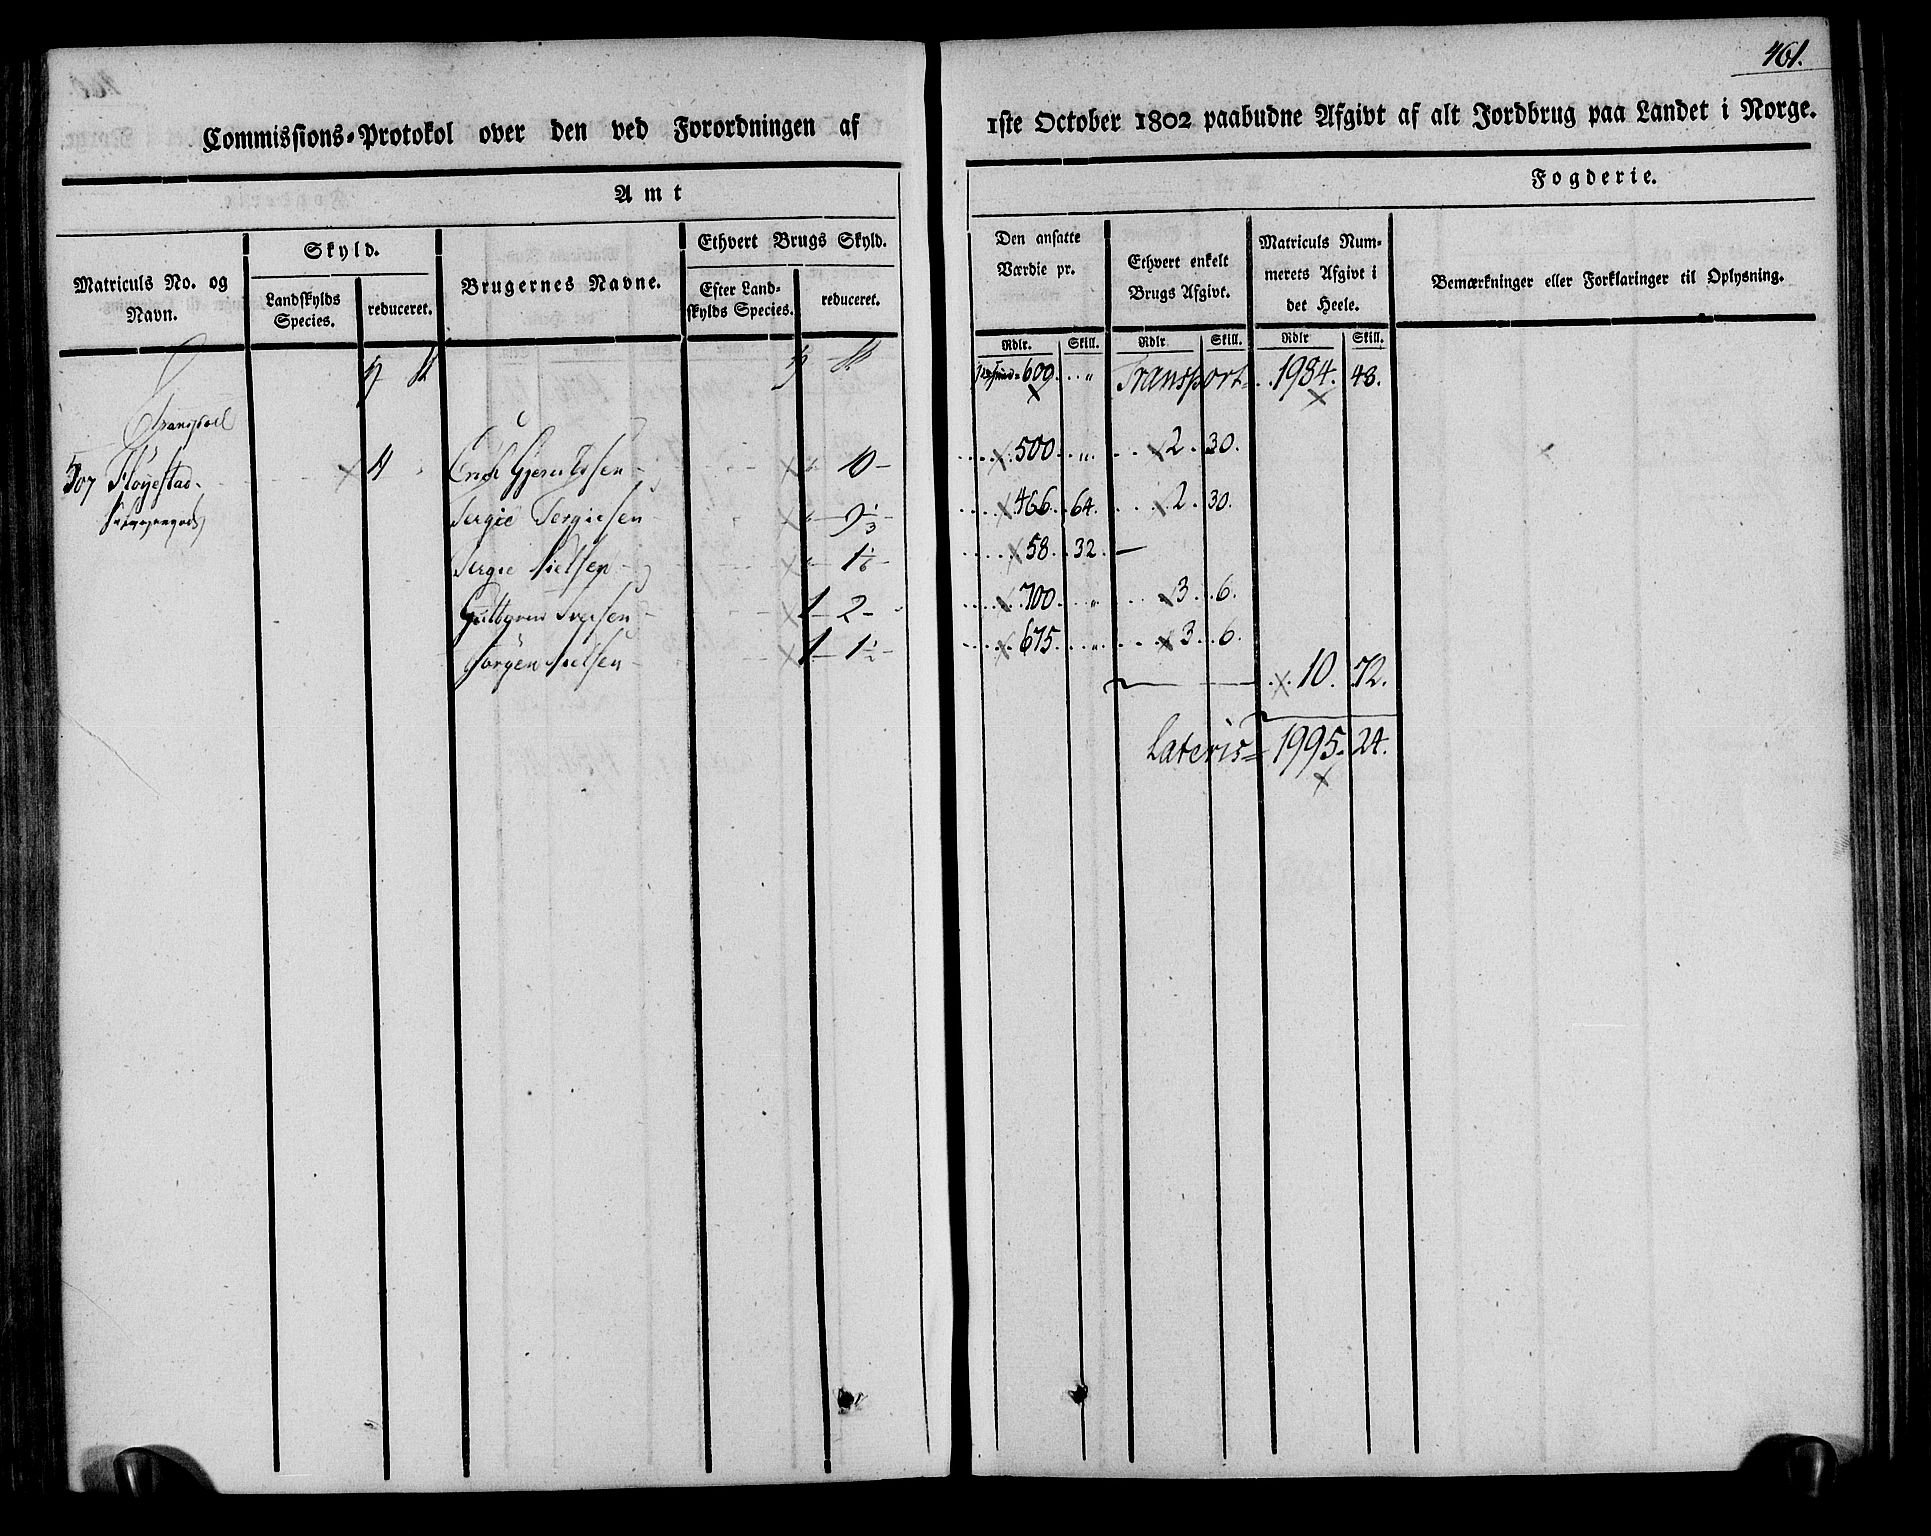 461.
Commissions-Protokol over den ved Forordningen af 1ste October 1802 paabudne Afgivt af alt Jordbrug paa Landet i Norge.
Amt
Fogderie.
Matriculs No. og Navn.
Skyld.
Landskylds Species.
reduceret.
Brugernes Navne.
Ethvert Brugs Skyld.
Efter Landskylds Species.
reduceret.
Den ansatte Værdie pr.
Ethvert enkelt Brugs Afgivt.
Matriculs Nummerets Afgivt i det Heele.
Bemærkninger eller Forklaringer til Oplysning.
Rdlr. Skill. Rdlr Skill. Rdlr Skill.
600 " Transport 1984. 48.
Transport
507 Fløyestad 4 Erich Gjeruldsen 10 500 " 2. 30.
Tergie Tergiesen 9 1/3 466. 64. 2. 30.
Tergie Nielsen 1 1/6 58. 32.
Guttorm Iversen 1 2 700 " 3. 6.
Jørgen Nielsen 1 1 1/2 675. " 3. 6.
10. 72.
Lateris 1995. 24.